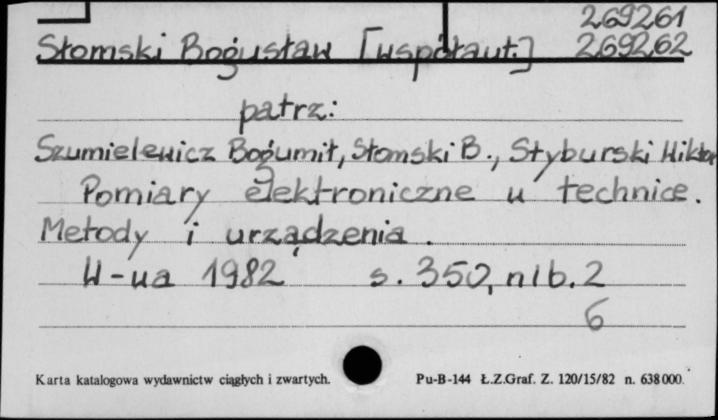 269261
Słomski Bogusław [współaut.] 269262
patrz:
Szumielewicz Bogumił, Słomski B., Styburski Wiktor
Pomiary elektroniczne w technice.
Metody i urządzenia.
W-wa 1982 s. 350, nlb. 2
6
Karta katalogowa wydawnictw ciągłych i zwartych. Pu-B-144 Ł.Z.Graf. Z. 120/15/82 n. 638000.